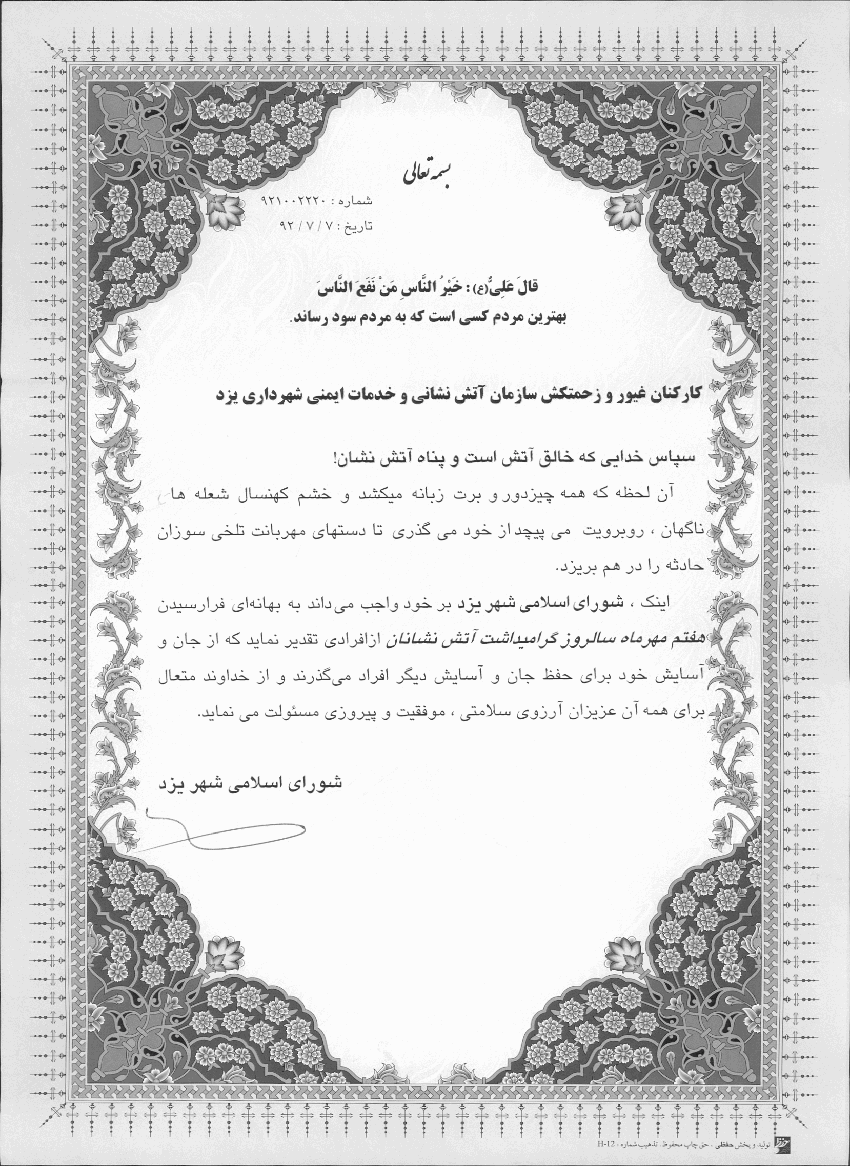 بسمه تعالی
شماره : ۹۲۱۰۰۲۲۲۰
تاریخ : ۷ / ۷ / ۹۲
قالَ عَلِیُّ(ع) : خَیْرُ النَّاسِ مَنْ نَفَعَ النَّاسَ
بهترین مردم کسی است که به مردم سود رساند.
کارکنان غیور و زحمتکش سازمان آتش نشانی و خدمات ایمنی شهرداری یزد
سپاس خدایی که خالق آتش است و پناه آتش نشان!
آن لحظه که همه چیزدور و برت زبانه میکشد و خشم کهنسال شعله ها
ناگهان ، روبرویت می پیچد از خود می گذری تا دستهای مهربانت تلخی سوزان
حادثه را در هم بریزد.
اینک ، شورای اسلامی شهر یزد بر خود واجب می‌داند به بهانه‌ای فرارسیدن
هفتم مهرماه سالروز گرامیداشت آتش نشانان ازافرادی تقدیر نماید که از جان و
آسایش خود برای حفظ جان و آسایش دیگر افراد می‌گذرند و از خداوند متعال
برای همه آن عزیزان آرزوی سلامتی ، موفقیت و پیروزی مسئولت می نماید.
شورای اسلامی شهر یزد
تولید و پخش حفظی . حق چاپ محفوظ . تذهیب شماره : H-12